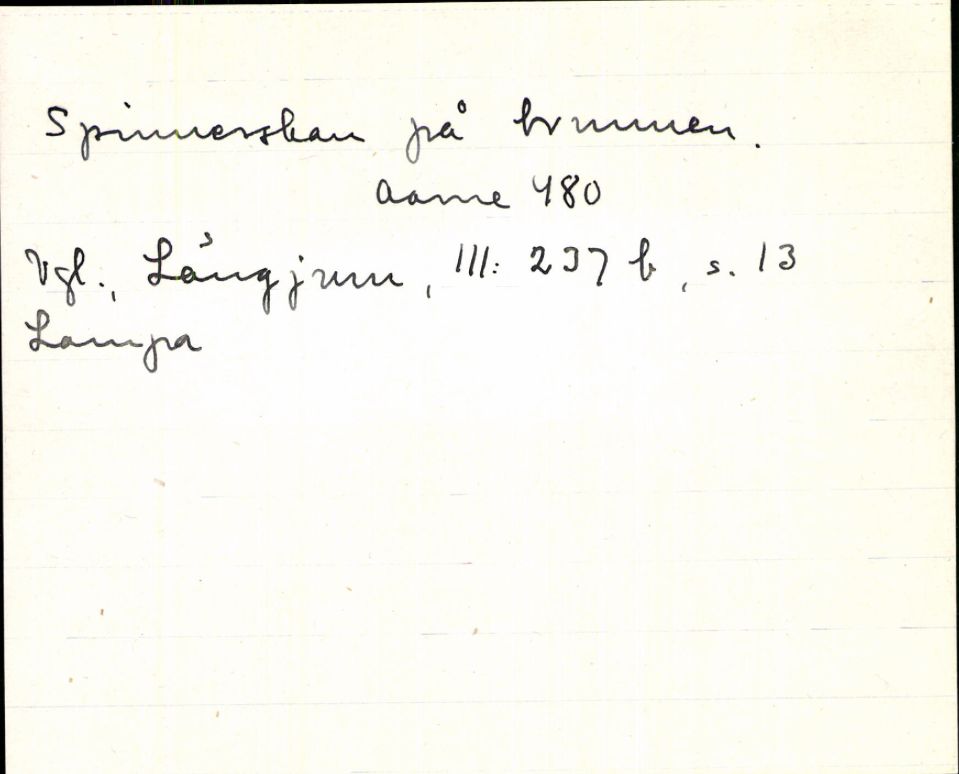 Spinnerskan på brunnen.
Aarne 480
Vgl., Långjum, III: 237 b, s. 13
Lampa